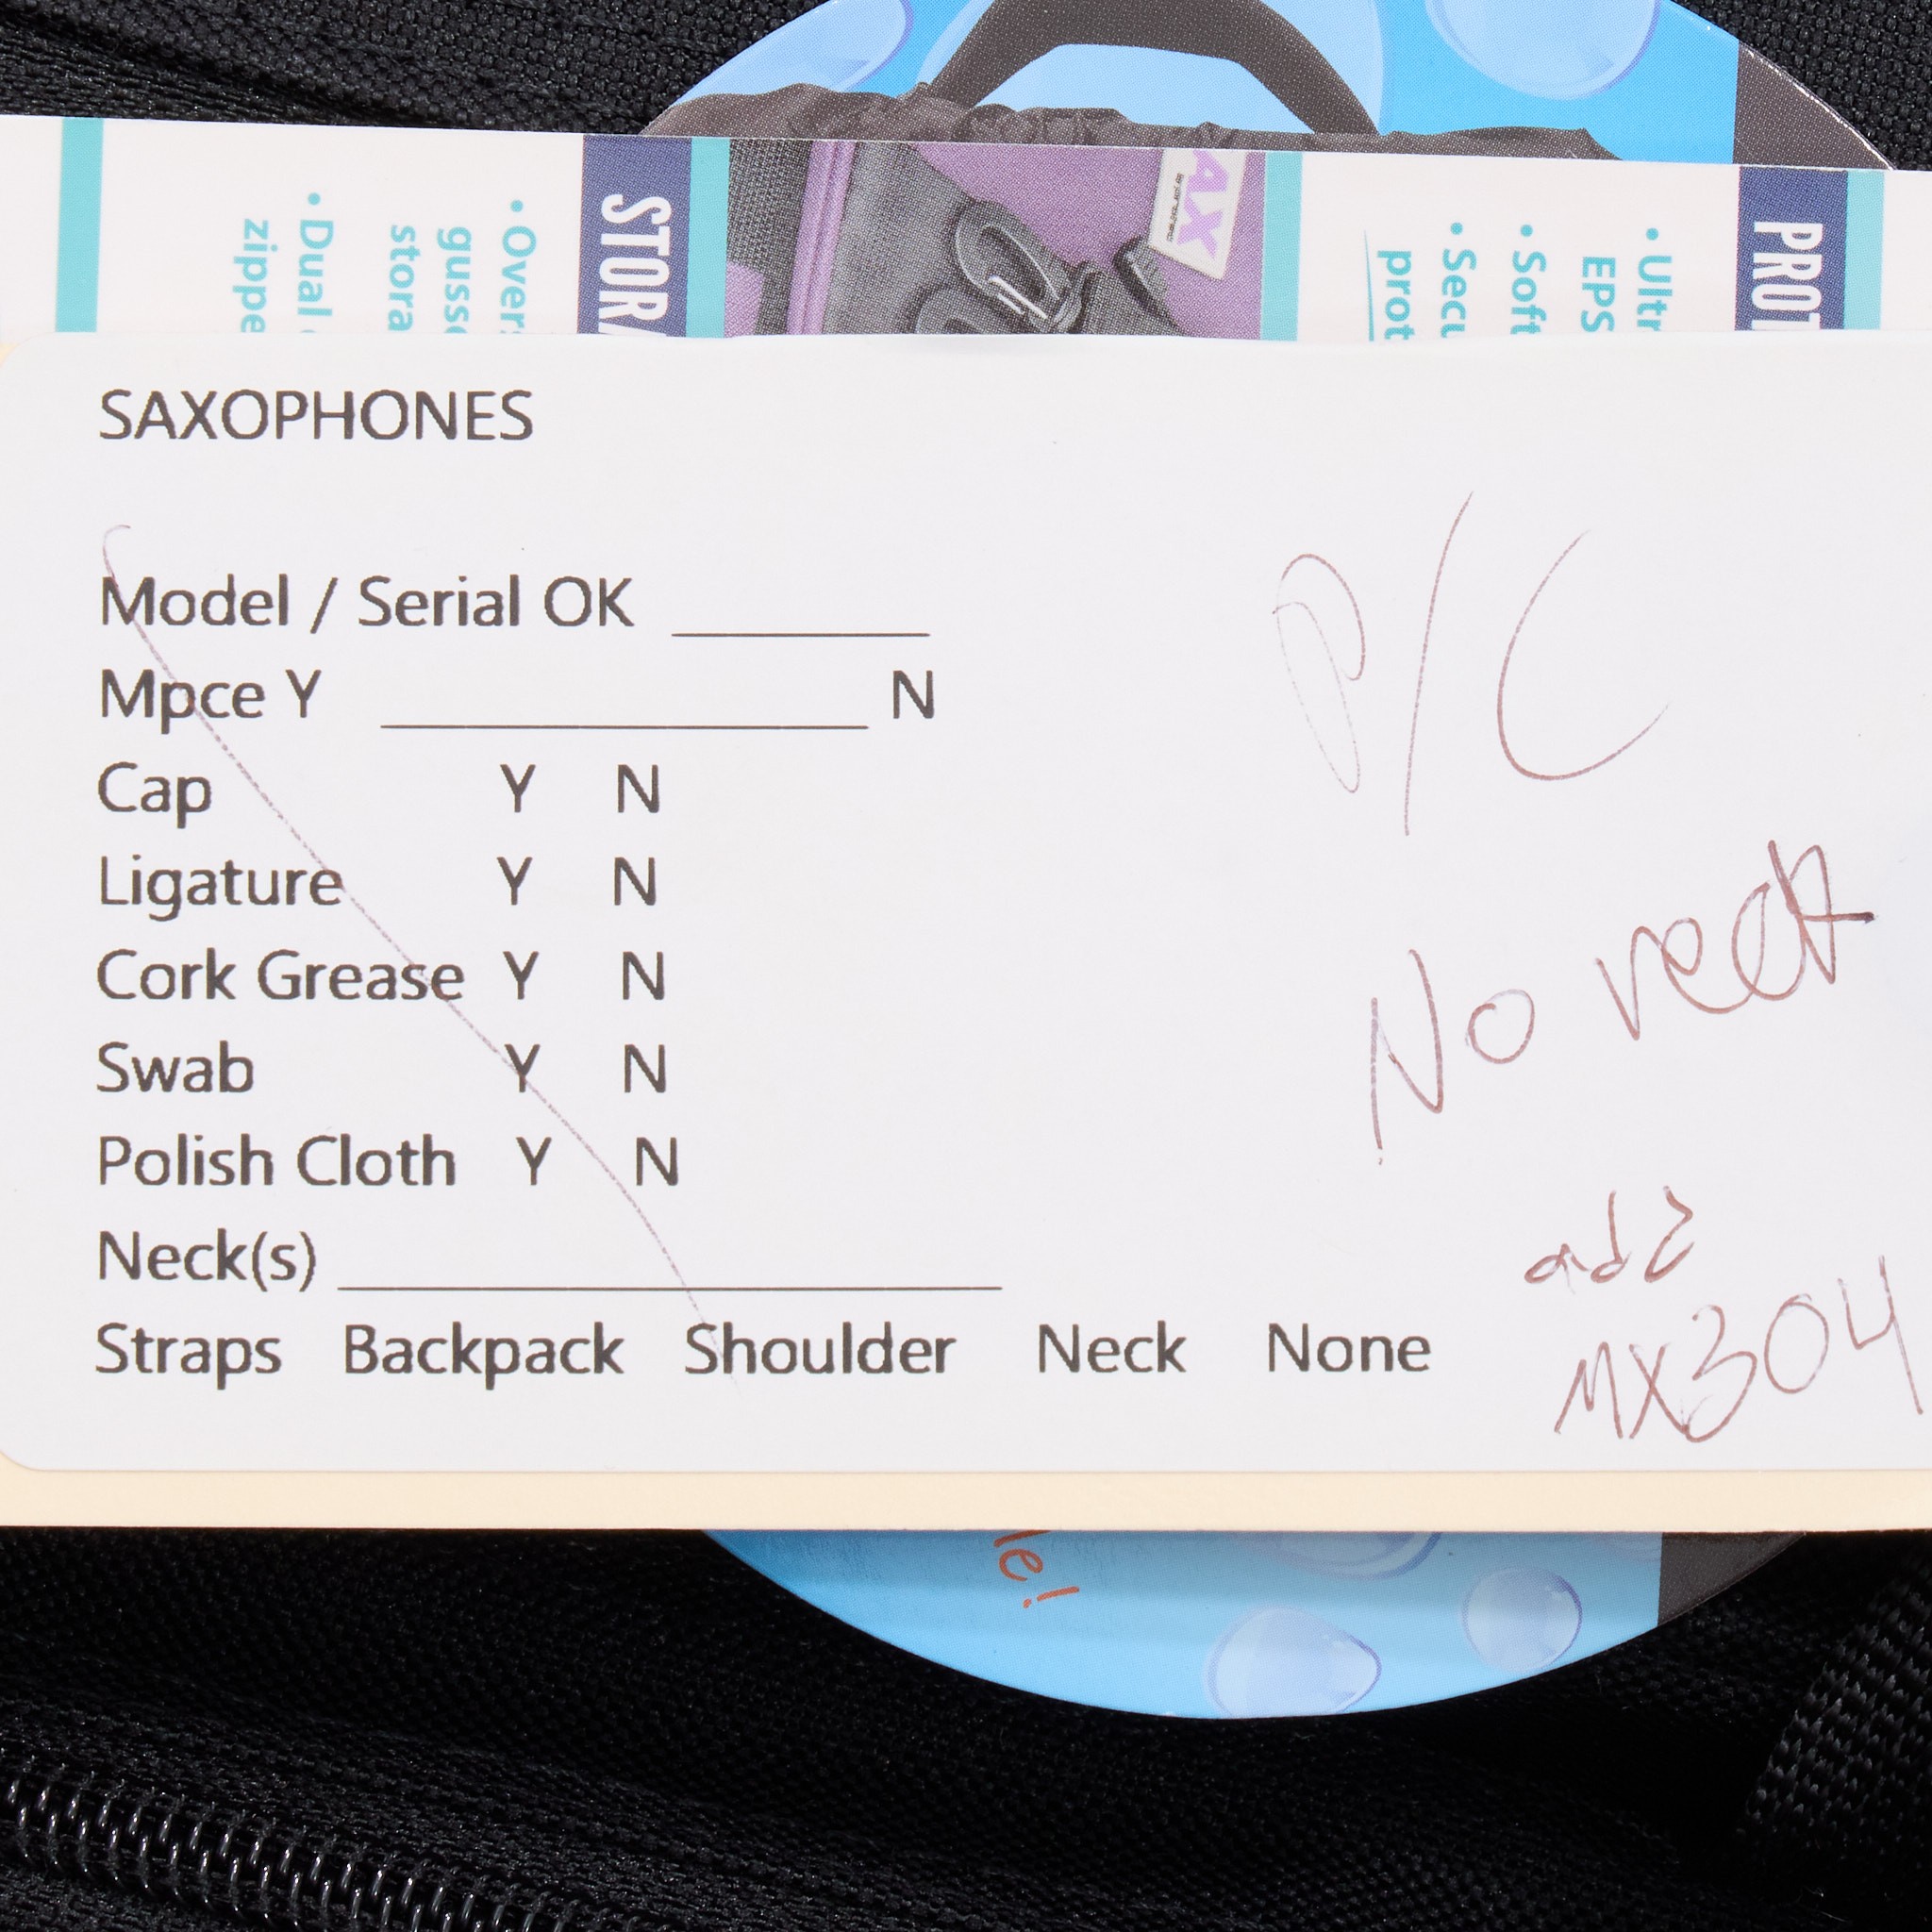 • Dual
zippe
• Over
gusse
stora
STORA
AX
• Ultr
EPS
• Soft
• Secu
prot
PROT
SAXOPHONES
Model / Serial OK ______
Mpce Y ____________ N
Cap Y N
Ligature Y N
Cork Grease Y N
Swab Y N
Polish Cloth Y N
Neck(s) ________________
Straps Backpack Shoulder Neck None
P/C
No neck
add
MX304
le!